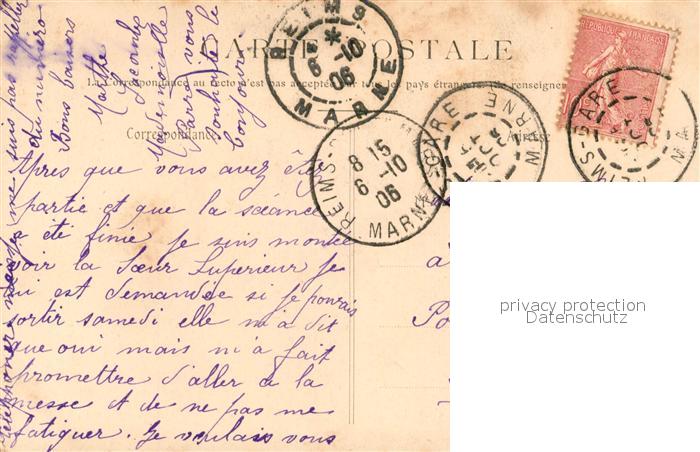 CARTE POSTALE
La correspondance au recto n'est pas acceptée par tous les pays étrangers (se renseigner
Correspondance
Adresse
REPUBLIQUE FRANÇAISE
REIMS
6 -10
06
MARNE
REIMS-
8 15
6 -10
06
MARNE
GARE MARNE
REIMS-GARE
MA
Après que vous avez été
partie et que la séance
a été finie je suis montée
voir la Sœur Supérieur je
lui est demandée si je pouvais
sortir samedi elle m'a dit
que oui mais m'a fait
promettre d'aller à la
messe et de ne pas me
fatiguer. Je voulais vous
téléphoner mais je ne suis pas rappeler
du numéro
Bons baisers
Marthe
Lacombe
Mademoiselle
vous
souhaite le
bonjour
a
Po
privacy protection
Datenschutz